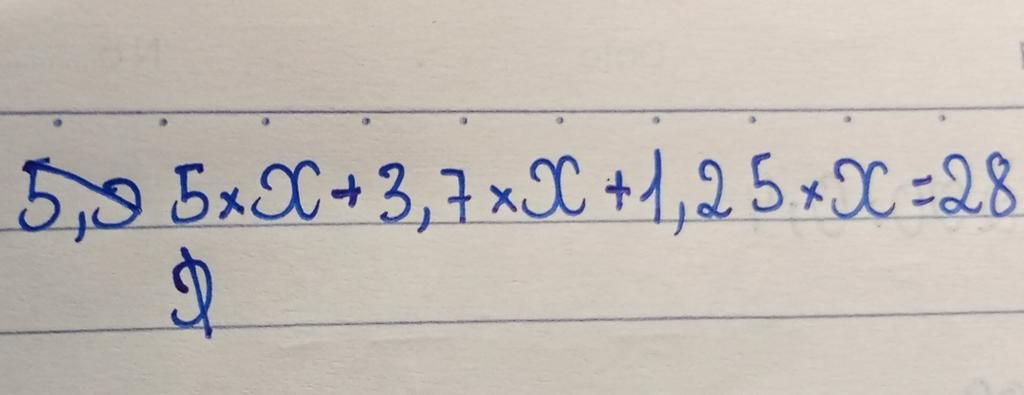 5,9 5×x+3,7×x+1,25×x=28